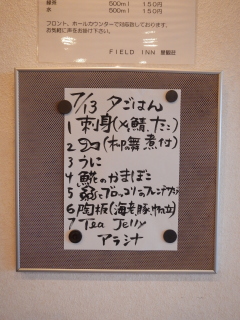 緑茶 500ml 150円
水 500ml 150円
フロント、ホールカウンターで対応致しております。
お気軽に声をお掛け下さい。
FIELD INN
7/13 夕ごはん
1 刺身(〆鯖、たこ)
2
3 うに
4 鱈のかまぼこ
5 とブロッコリーの
6 陶板(海老、豚、帆立)
7 Tea Jelly
アラシナ